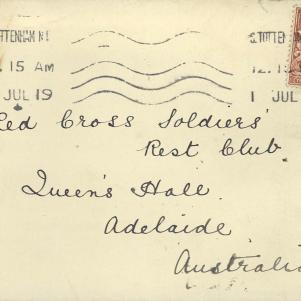 TTENHAM N.1
S. TOTTENHAM
.15 AM
12.15
JUL 19
1 JUL
Red Cross Soldiers'
Rest Club
Queen's Hall
Adelaide
Australia